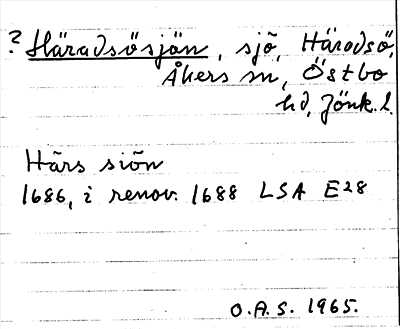 ? Häradsösjön, sjö, Häradsö,
Åkers sn, Östbo
hd, Jönk. l.
Härs siön
1686, i renov. 1688 LSA E28
O.A.S. 1965.